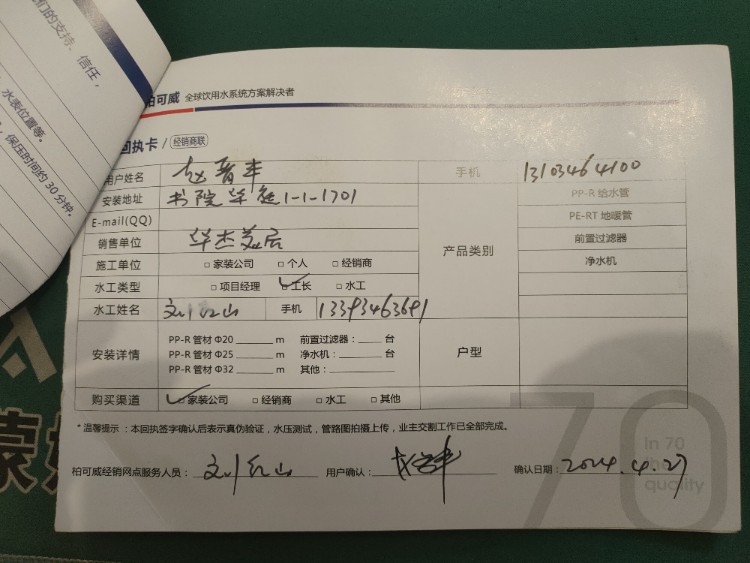 们的支持、信任，
水表位置等。
保压时间约 30 分钟。
柏可威 全球饮用水系统方案解决者
回执卡 / 经销商联
用户姓名 赵晋丰 手机 13103464100
安装地址 书院华庭1-1-1701
E-mail(QQ)
销售单位 华杰美居
产品类别
PP-R 给水管
PE-RT 地暖管
前置过滤器
净水机
施工单位 □ 家装公司 □ 个人 □ 经销商
水工类型 □ 项目经理 ☑ 工长 □ 水工
水工姓名 刘红山 手机 13393463691
安装详情
PP-R 管材 Φ20 ______ m 前置过滤器：____ 台
PP-R 管材 Φ25 ______ m 净水机：____ 台
PP-R 管材 Φ32 ______ m 其他：______
户型
购买渠道 ☑ 家装公司 □ 经销商 □ 水工 □ 其他
* 温馨提示：本回执签字确认后表示真伪验证，水压测试，管路图拍摄上传，业主交割工作已全部完成。
柏可威经销网点服务人员：刘红山 用户确认： 确认日期：2024.4.27
70
In 70
quality